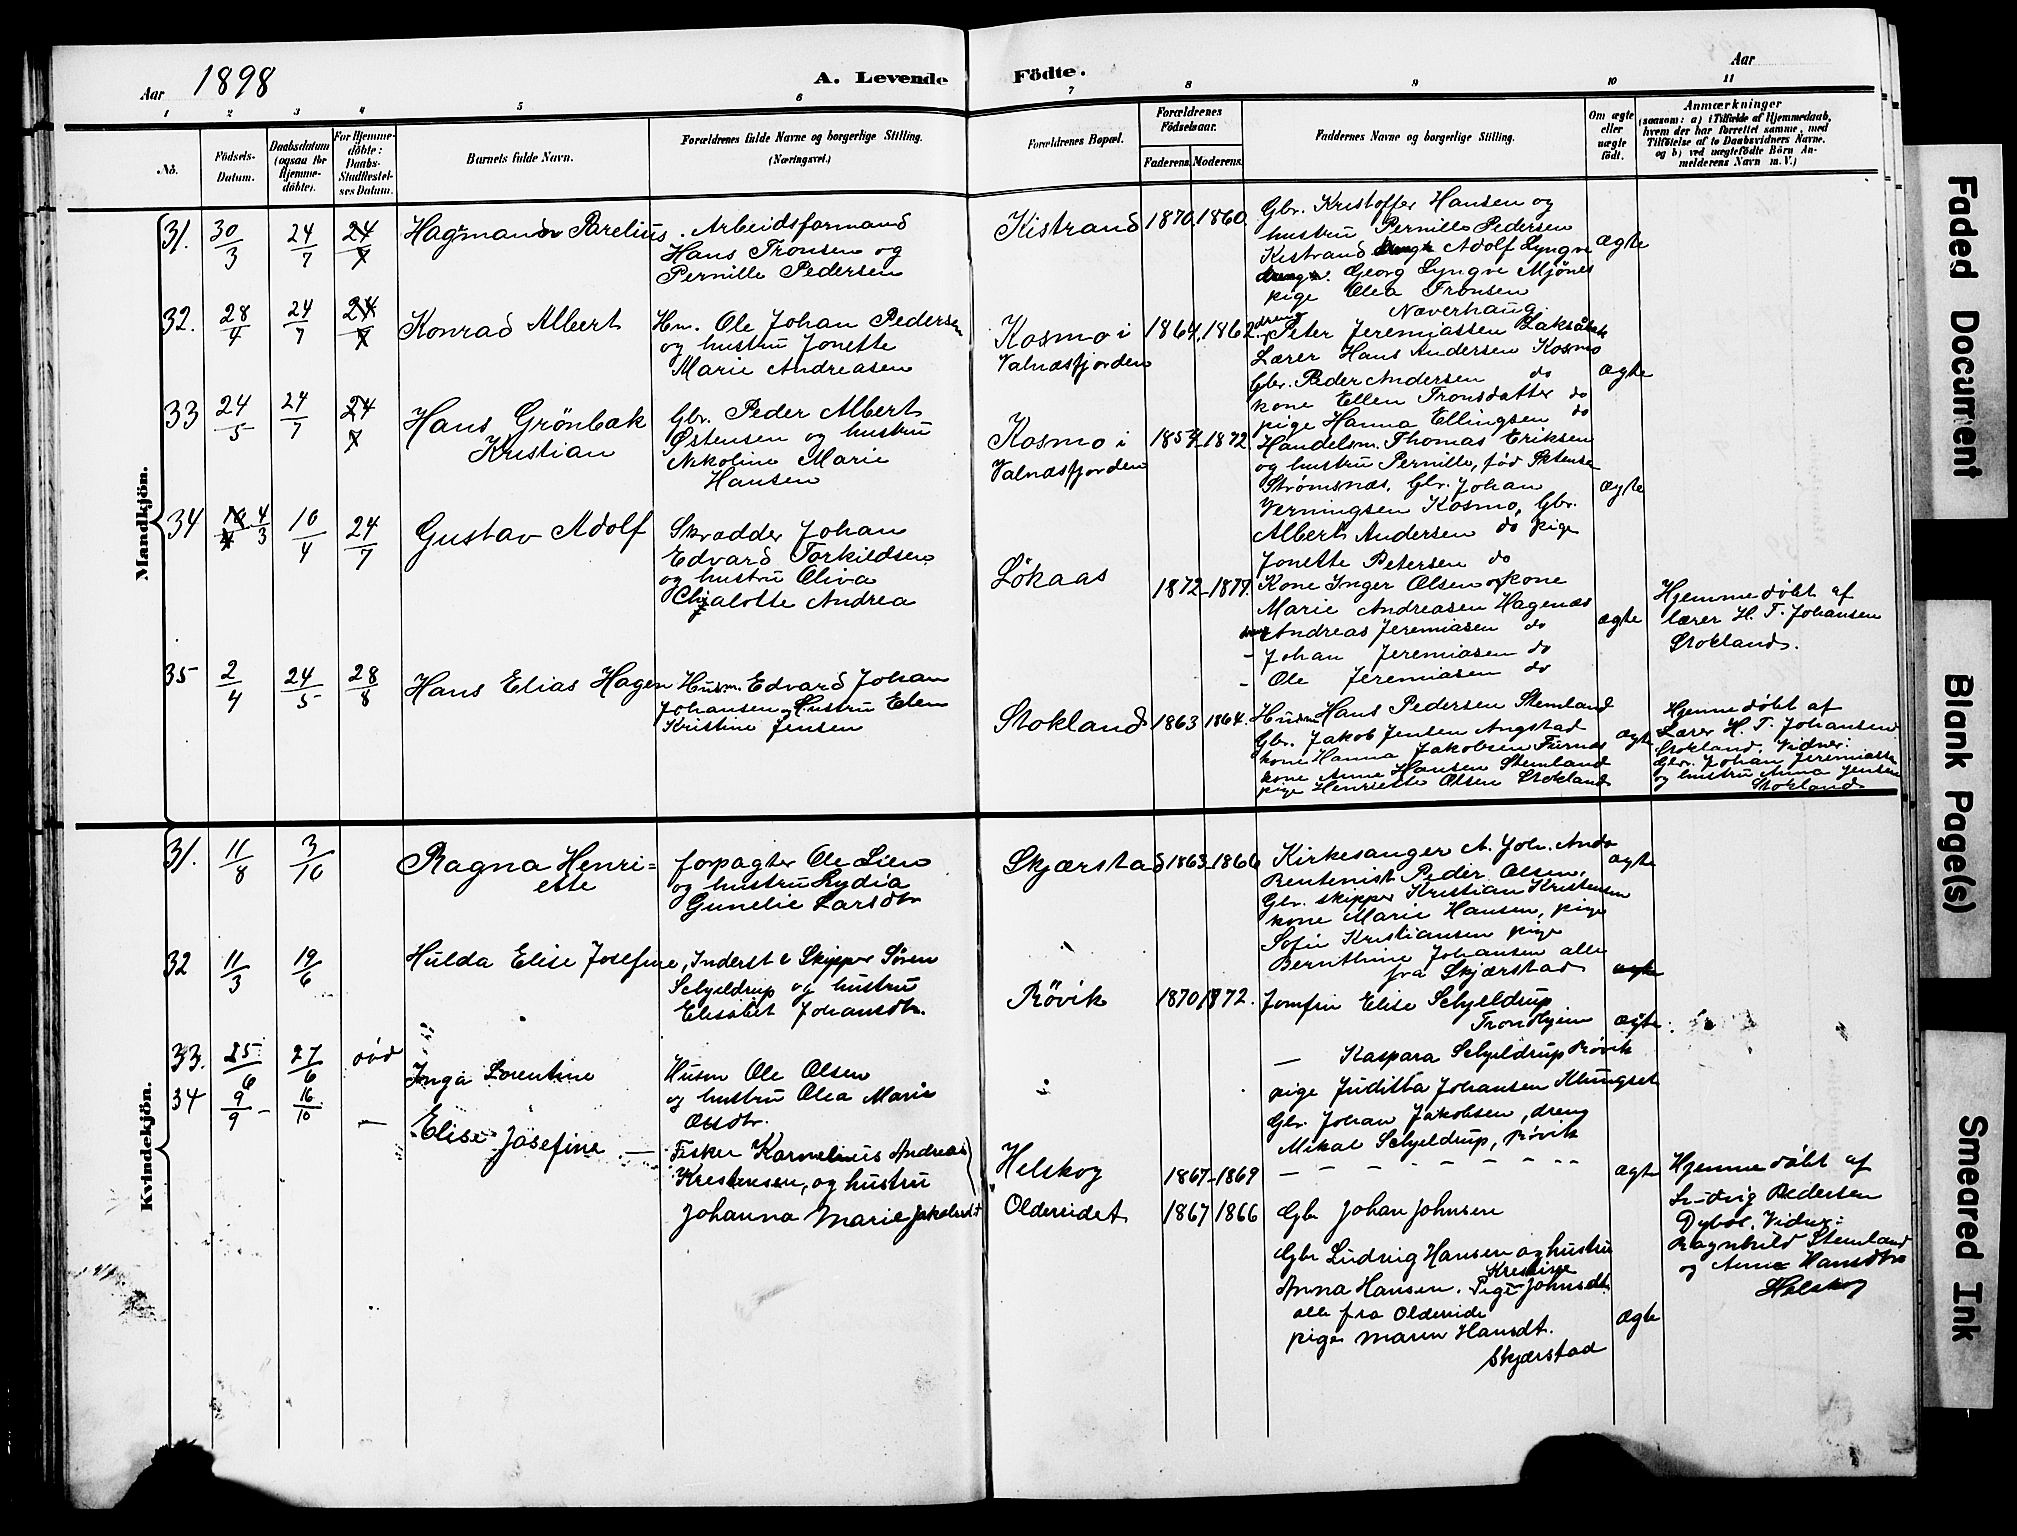 Aar 1898
A. Levende Födte.
Aar
1 2 3 4 5 6 7 8 9 10 11
No.
Födsels-Datum.
Daabsdatum (ogsaa for Hjemmedöbte).
For Hjemmedöbte: Daabs-Stadfæstelses Datum.
Barnets fulde Navn.
Forældrenes fulde Navne og borgerlige Stilling.
(Næringsvei.)
Forældrenes Bopæl.
Forældrenes Födselsaar.
Faderens. Moderens.
Faddernes Navne og borgerlige Stilling.
Om ægte eller uægte födt.
Anmærkninger
(saasom: a) i Tilfælde af Hjemmedaab,
hvem der har forrettet samme, med
Tilföielse af to Daabsvidners Navne.
og b) ved uægtefödte Börn An-
melderens Navn m. V.)
Mandkjön.
31. 30/3 24/7 24/7 Hagman Parelius. Arbeidsformand
Hans Tronsen og
Pernille Pedersen
Kistrand 1870. 1860.
Gbr. Kristoffer Hansen og
hustru Pernille Pedersen
Kistrand Adolf Lyngve
Georg Lyngve Mjönes
pige Olea Tronsen
Næverhaug
ægte
32. 28/4 24/7 24/7 Konrad Albert
Hm. Ole Johan Pedersen
og hustru Jonette
Marie Andreasen
Kosmo i
Valnæsfjorden
1864. 1862.
dreng Peter Jeremiassen
Lærer Hans Andersen Kosmo
Gbr. Peder Andersen do
kone Ellen Tronsdatter do
pige Hanna Ellingsen do
ægte
33 24/5 24/7 24/7 Hans Grönbæk
Kristian
Gbr. Peder Albert
Østensen og hustru
Nikoline Marie
Hansen
Kosmo i
Valnæsfjorden
1857. 1872.
Handelsm. Thomas Eriksen
og hustru Pernille, fød
Strømsnæs, Gbr. Johan
Verningsen Kosmo, Gbr.
Albert Andersen do pige
Jonette Petersen do
ægte
34 4/3 10/4 24/7 Gustav Adolf
Skrædder Johan
Edvard Torkildsen
og hustru Oliva
Chalotte Andrea
Lökaas
1872 - 1879.
Kone Inger Olsen og kone
Marie Andreasen Hagenæs
dreng Andreas Jeremiasen do
- Johan Jeremiasen do
- Ole Jeremiasen do
ægte
Hjemmedöbt af
lærer H. T. Johansen
Stokland.
35 2/4 24/5 28/8 Hans Elias Hagen
Husm. Edvard Johan
Johansen og Hustru Elen
Kristine Jensen
Stokland 1863 1864.
Husm Hans Pedersen Stemland
Gbr. Jakob Jensen Angstad
kone Hanna Jakobsen Furnæs
kone Anne Hansen Stemland
pige Henriette Olsen Stokland
ægte
Hjemmedöbt af
Lærer H. T. Johansen
Stokland. Vidner:
Gbr. Johan Jeremiassen
og hustru Anna Jensen
Stokland
Kvindekjön.
31. 11/8 3/10 Ragna Henri=
ette
forpagter Ole Lien
og hustru Lydia
Gunelie Larsdtr
Skjærstad 1863 1866
Kirkesanger A. Joh. Ands
Rentenist Peder Olsen,
Gbr. skipper Kristian Kristensen
kone Marie Hansen, pige
Sofie Kristiansen pige
Bernthine Johansen alle
fra Skjærstad
ægte
32 11/3 19/6 Hulda Elise Josefine,
Inderst & Skipper Sören
Schjeldrup og hustru
Elisabet Johansdtr.
Rövik 1870 1872.
Jomfru Elise Schjeldrup
Trondhjem
- Kaspara Schjeldrup Rövik
pige Juditta Johansen Klungset
Gbr. Johan Jakobsen, dreng
Mikal Schjeldrup, Rövik
ægte
ægte
33. 25/6 27/6 död Inga Lorentine
Husm Ole Olsen
og hustru Olea Marie
Olsdtr.
Helskog
1867 - 1869
- - - - - - - -
ægte
Hjemmedöbt af
Ludvig Pedersen
Dybvl. Vidner:
Ragnhild Stemland
og Anne Hansdtr
Helskog
34 9/9 - 16/10 - Elise Josefine -
Fisker Kornelius Andreas
Kristensen, og hustru
Johanna Marie Jakobsdt
Oldereidet 1867 1866
Gbr Johan Johnsen
Gbr Ludvig Hansen og hustru
Anna Hansen. Pige Kristine Johnsdt.
alle fra Oldereide
pige Maren Hansdt.
Skjærstad
ægte
Faded Document
Blank Page(s)
Smeared Ink